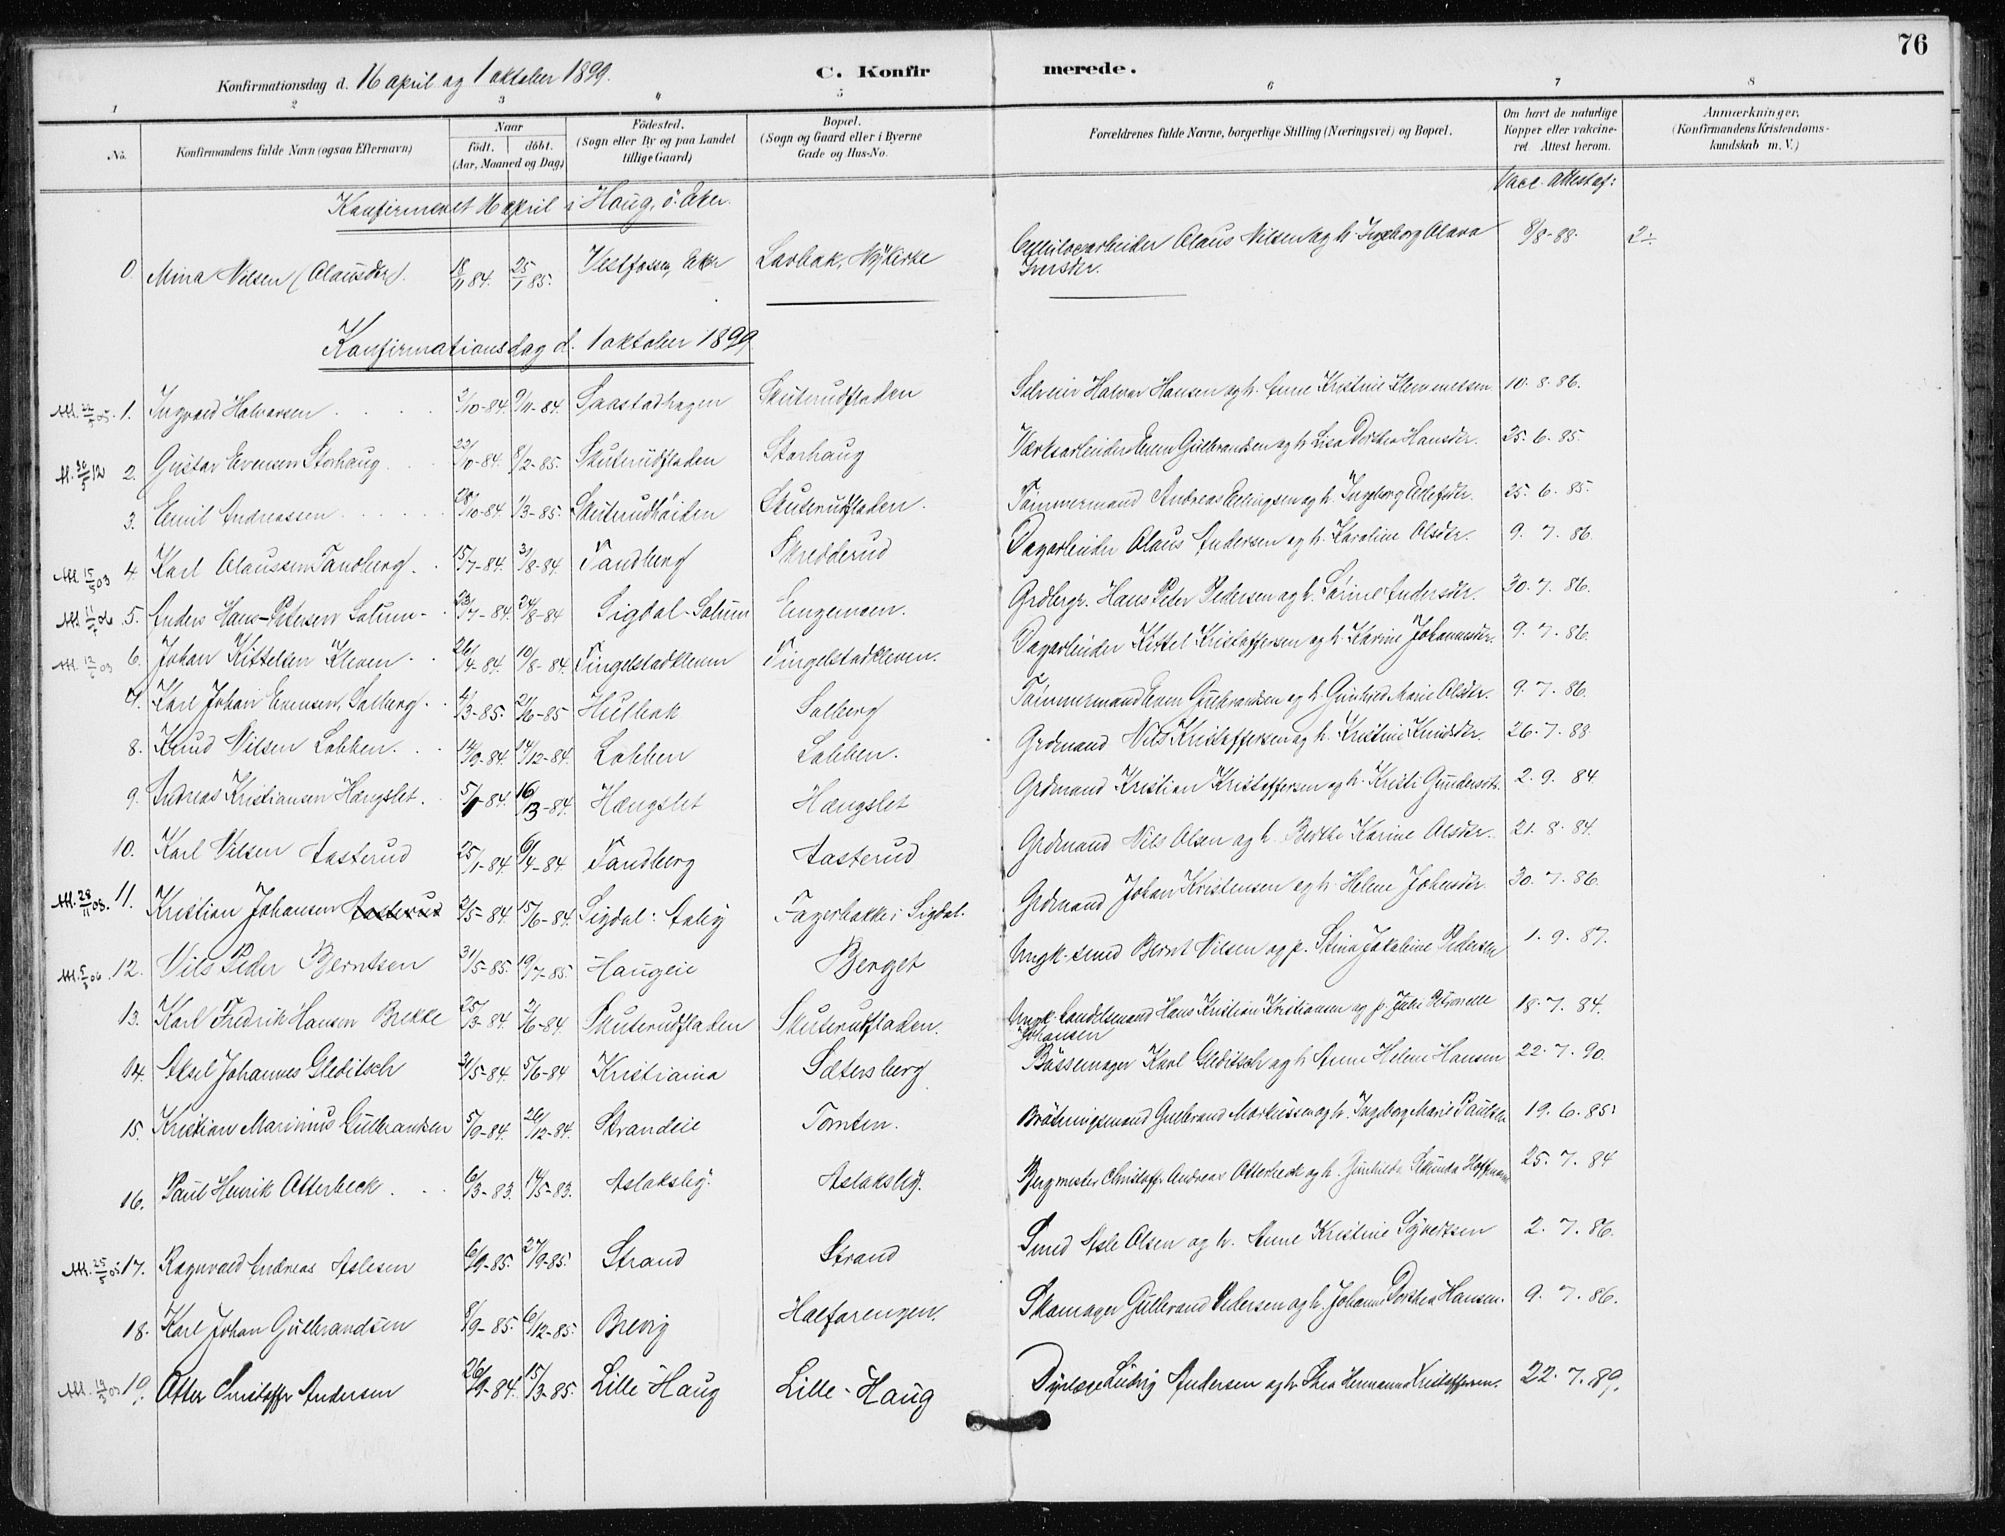 76
Konfirmationsdag d. 16 april og 1 oktober 1899.
C. Konfirmerede.
1 2 3 4 5 6 7 8
No. Konfirmandens fulde Navn (ogsaa Efternavn) Naar födt. döbt. (Aar, Maaned og Dag) Födested. (Sogn eller By og paa Landet tillige Gaard) Bopæl. (Sogn og Gaard eller i Byerne Gade og Hus-No. Forældrenes fulde Navne, borgerlige Stilling (Næringsvei) og Bopæl. Om havt de naturlige Kopper eller vakcineret. Attest herom. Anmærkninger. (Konfirmandens Kristendomskundskab m. V.)
Vacc. attest af:
Konfirmeret 16 april i Haug, ö. Eker.
0 Mina Nilsen (Olausdtr). 18/11 84. 25/1 85. Vestfossen, Eker Lavbak, Nykirke Cellulosearbeider Olaus Nilsen og h. Ingeborg Olava Iversdtr. 8/8-88. 2÷
Konfirmationsdag d. 1 oktober 1899.
1. Ingvald Halvorsen 2/10-84 9/11-84 Saastadhagen Skuterudfladen Halvor Hansen og h. Anne Kristine Klemmetsen 10.8.86.
2. Gustav Evensen Storhaug 22/10-84. 8/2-85. Skuterudfladen Storhaug Værksarbeider Even Gulbrandsen og h. Lisa Dorthea Hansdtr. 25.6.85.
3. Emil Andreassen 28/10-84. 1/3-85. Skuterudhöiden Skuterudfladen. Tömmermand Andreas Ellingsen og h. Ingeborg Ellefsdtr. 25.6.85.
4. Karl Olaussen Tandberg. 15/7-84. 31/8-84 Tandberg Skredderud Dagarbeider Olaus Andersen og h. Karoline Olsdtr. 9.7.86.
5. Anders Hans-Petersen Solum 23/7-84. 24/8-84 Sigdal-Solum Engemoen. Grdbrgr. Hans Peter Pedersen og h. Sörine Andersdtr. 30.7.86.
6. Johan Kittelsen Kleven 26/4-84. 10/8-84 Tingelstadkleven Tingelstadkleven. Dagarbeider Kittel Kristoffersen og h. Karine Johannesdtr. 9.7.86.
7. Karl Johan Evensen Solberg 4/3-85. 21/6-85 Hulbak Solberg Tömmermand Even Gulbrandsen og h. Gunhild Marie Olsdtr. 9.7.86.
8. Knud Nilsen Lobben. 12/9-84. 14/12-84. Lobben Lobben. Grdmand Nils Kristoffersen og h. Kristine Knudsdtr. 26.7.88
9. Andreas Kristiansen Hængslet. 5/1-84. 16/3-84. Hængslet Hængslet Grdmand Kristian Kristoffersen og h. Kristi Gundersdtr. 2.9.84
10. Karl Nilsen Aasterud 25/1-84. 6/4-84. Tandberg Aasterud Grdmand Nils Olsen og h. Berthe Karine Olsdtr. 21.8.84.
11. Kristian Johansen Aasterud 2/5-84. 15/6-84. Sigdal: Aaby Fagerbakke i Sigdal. Grdmand Johan Kristensen og h. Helene Johnsdtr. 30.7.86.
12. Nils Peder Berntsen 31/5-85. 19/7-85. Haugeie Berget Ungk. smed Bernt Nilsen og p. Stina Jakobine Pedersen 1.9.87.
13. Karl Fredrik Hansen Brekke 25/3-84. 2/6-84. Skuterudfladen Skuterudfladen. Ungk. handelsmand Hans Kristian Kristiansen og p. Julie Petronelle Johansen 18.7.84.
14. Aksel Johannes Gleditsch 2/5-84. 5/6-84 Kristiania Sætersberg Bössemager Karl Gleditsch og h. Anne Helene Hansen 22.7.90.
15. Kristian Marinius Gulbrandsen 5/9-84. 26/12-84. Strandeie Tomten. Bråtningsmand Gulbrand Markussen og h. Ingeborg Marie Paulsdtr 19.6.85.
16. Paul Henrik Otterbeck 6/3-83. 14/5-83. Aslaksby. Aslaksby. Bergmester Christoffr Andreas Otterbeck og h. Gunhilda Sekunda Hoffmann 25.7.84
17. Ragnvald Andreas Aslesen 6/9-85. 27/9-85. Strand Strand Smed Asle Olsen og h. Anne Kristine Syvertsen 2.7.86.
18. Karl Johan Gulbrandsen 8/9-85. 6/12-85. Brevig Halforengen. Skomager Gulbrand Pedersen og h. Johanne Dorthea Hansen. 9.7.86.
19. Otter Christoffr Andersen 26/9-84. 15/3-85. Lille Haug Lille-Haug Dyrlæge Ludvig Andersen og h. Thea Hermanna Kristoffersen. 22.7.89.